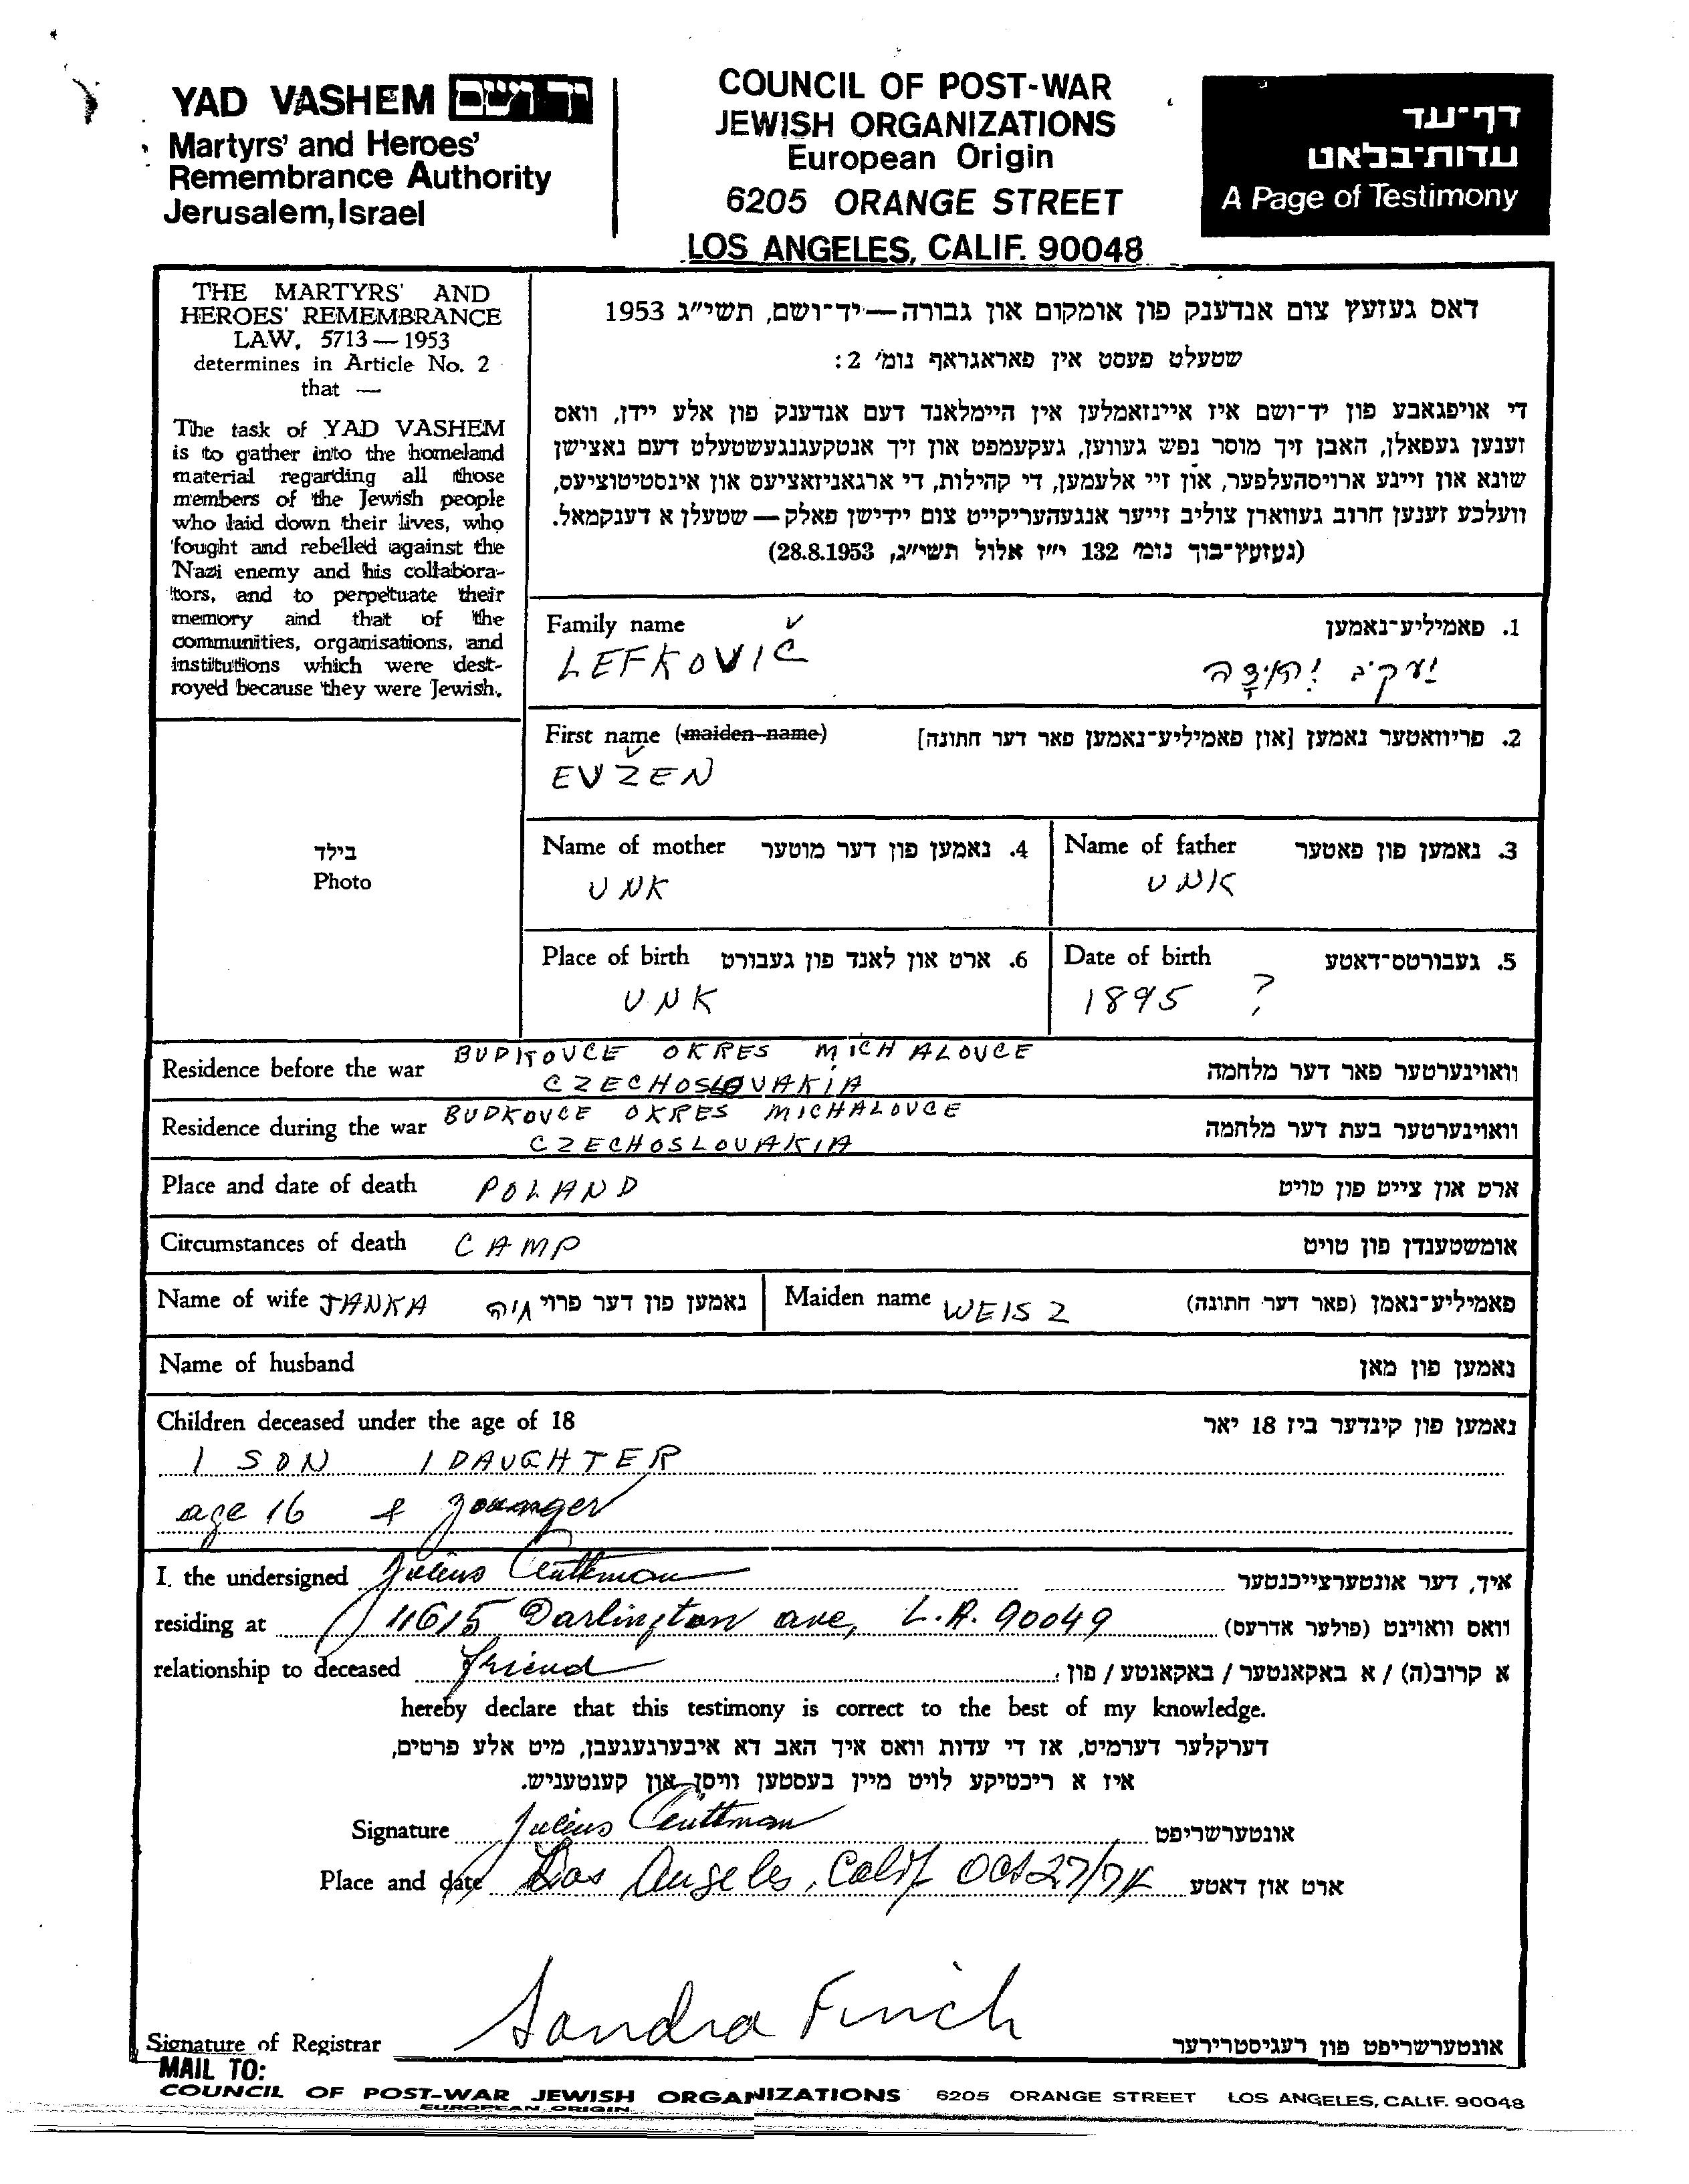 YAD VASHEM יד ושם
Martyrs' and Heroes'
Remembrance Authority
Jerusalem, Israel
COUNCIL OF POST-WAR
JEWISH ORGANIZATIONS
European Origin
6205 ORANGE STREET
LOS ANGELES, CALIF. 90048
דף־עד
עדות־בלאט
A Page of Testimony
THE MARTYRS' AND
HEROES' REMEMBRANCE
LAW, 5713—1953
determines in Article No. 2
that —
The task of YAD VASHEM
is to gather into the homeland
material regarding all those
members of the Jewish people
who laid down their lives, who
fought and rebelled against the
Nazi enemy and his collabora-
tors, and to perpetuate their
memory and that of the
communities, organisations, and
institutions which were dest-
royed because they were Jewish.
דאס געזעץ צום אנדענק פון אומקום און גבורה—יד־ושם, תשי״ג 1953
שטעלט פעסט אין פאראגראף נומ׳ 2:
די אויפגאבע פון יד־ושם איז איינזאמלען אין היימלאנד דעם אנדענק פון אלע יידן, וואס
זענען געפאלן, האבן זיך מוסר נפש געווען, געקעמפט און זיך אנטקעגנגעשטעלט דעם נאצישן
שונא און זיינע ארויסהעלפער, און זיי אלעמען, די קהילות, די ארגאניזאציעס און אינסטיטוציעס,
וועלכע זענען חרוב געווארן צוליב זייער אנגעהעריקייט צום יידישן פאלק — שטעלן א דענקמאל.
(געזעץ־בוך נומ׳ 132 י״ז אלול תשי״ג, 28.8.1953)
בילד
Photo
Family name 1. פאמיליע־נאמען
LEFKOVIČ יעקב
First name (maiden name) 2. פריוואטער נאמען [און פאמיליע־נאמען פאר דער חתונה]
EVŽEN
Name of mother 4. נאמען פון דער מוטער Name of father 3. נאמען פון פאטער
UNK UNK
Place of birth 6. ארט און לאנד פון געבורט Date of birth 5. געבורטס־דאטע
UNK 1895 ?
Residence before the war BUDKOVCE OKRES MICHALOVCE וואוינערטער פאר דער מלחמה
CZECHOSLOVAKIA
Residence during the war BUDKOVCE OKRES MICHALOVCE וואוינערטער בעת דער מלחמה
CZECHOSLOVAKIA
Place and date of death POLAND ארט און צייט פון טויט
Circumstances of death CAMP אומשטענדן פון טויט
Name of wife JANKA נאמען פון דער פרוי Maiden name WEISZ פאמיליע־נאמן (פאר דער חתונה)
Name of husband נאמען פון מאן
Children deceased under the age of 18 נאמען פון קינדער ביז 18 יאר
1 SON 1 DAUGHTER
age 16 & younger
I, the undersigned Julius איך, דער אונטערצייכנטער
residing at 11615 Darlington ave, L.A. 90049 וואס וואוינט (פולער אדרעס)
relationship to deceased friend א קרוב(ה) / א באקאנטער / באקאנטע / פון:
hereby declare that this testimony is correct to the best of my knowledge.
דערקלער דערמיט, אז די עדות וואס איך האב דא איבערגעגעבן, מיט אלע פרטים,
איז א ריכטיקע לויט מיין בעסטען וויסן און קענטעניש.
Signature Julius אונטערשריפט
Place and date Los Angeles, Calif Oct 27/74 ארט און דאטע
Signature of Registrar Sandra Finch אונטערשריפט פון רעגיסטרירער
MAIL TO:
COUNCIL OF POST-WAR JEWISH ORGANIZATIONS 6205 ORANGE STREET LOS ANGELES, CALIF. 90048
EUROPEAN ORIGIN